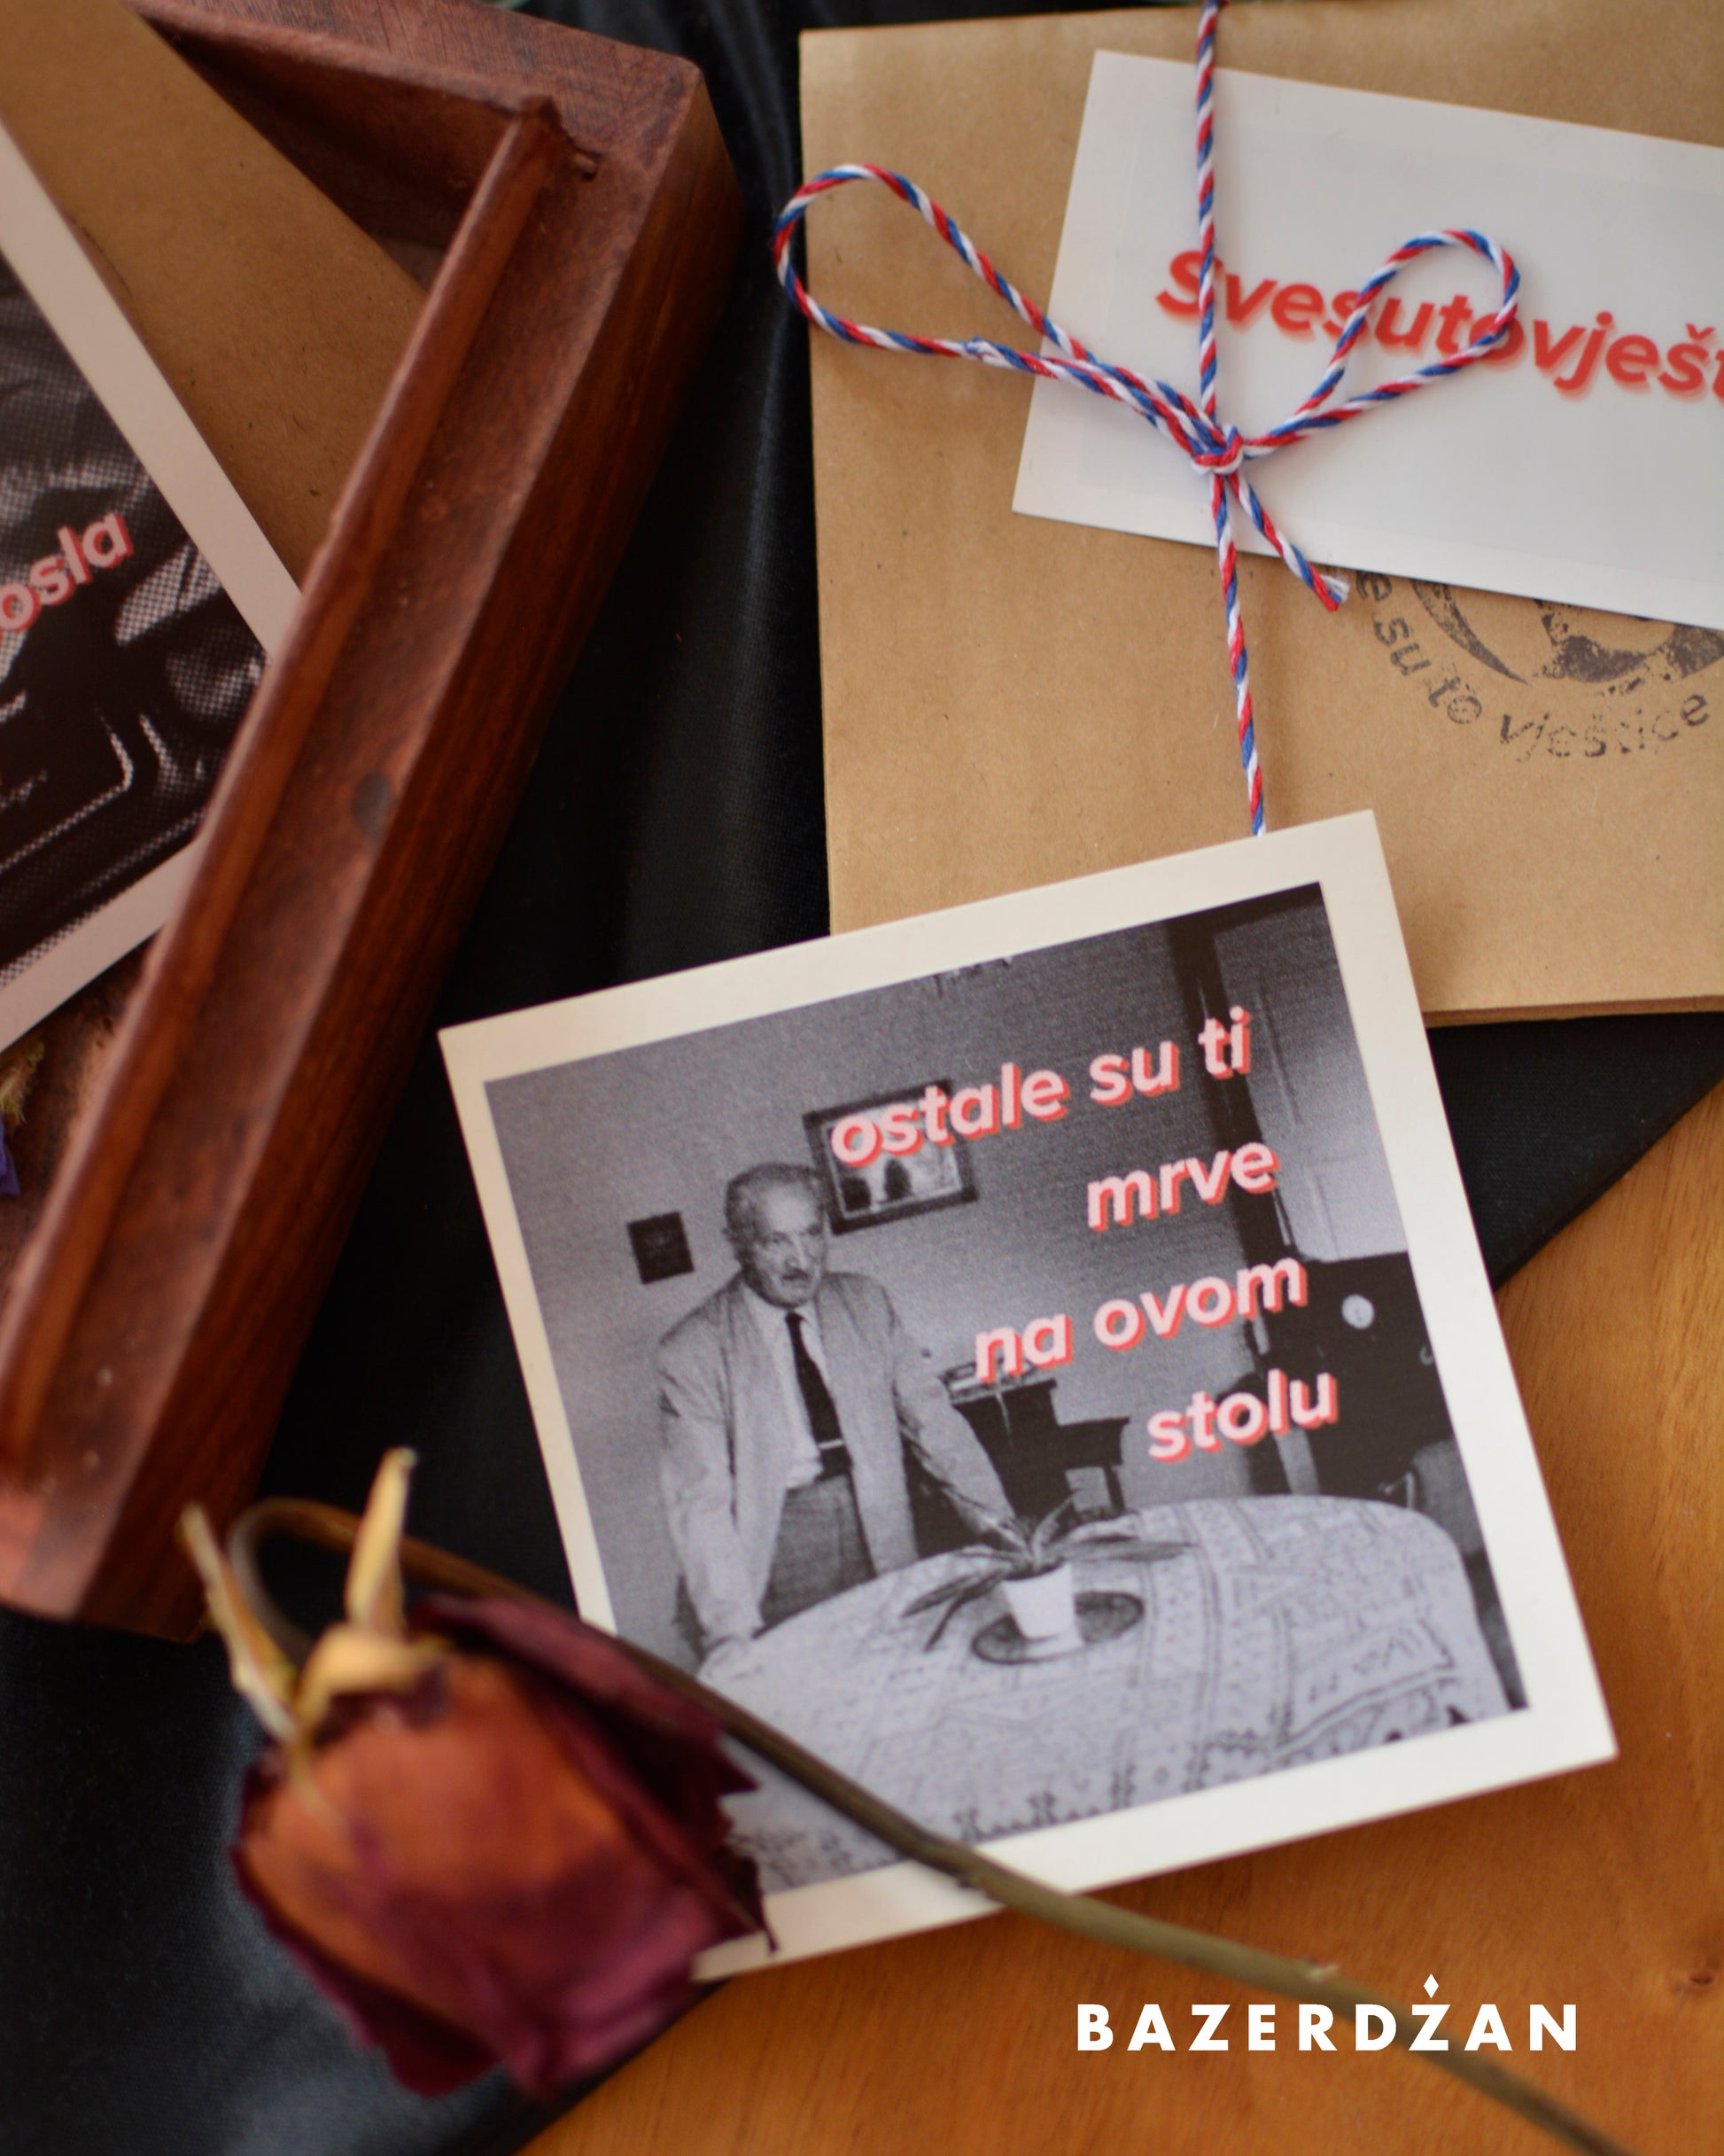 Svesutovješt
osla
e su to vještice
ostale su ti
mrve
na ovom
stolu
BAZERDŻAN